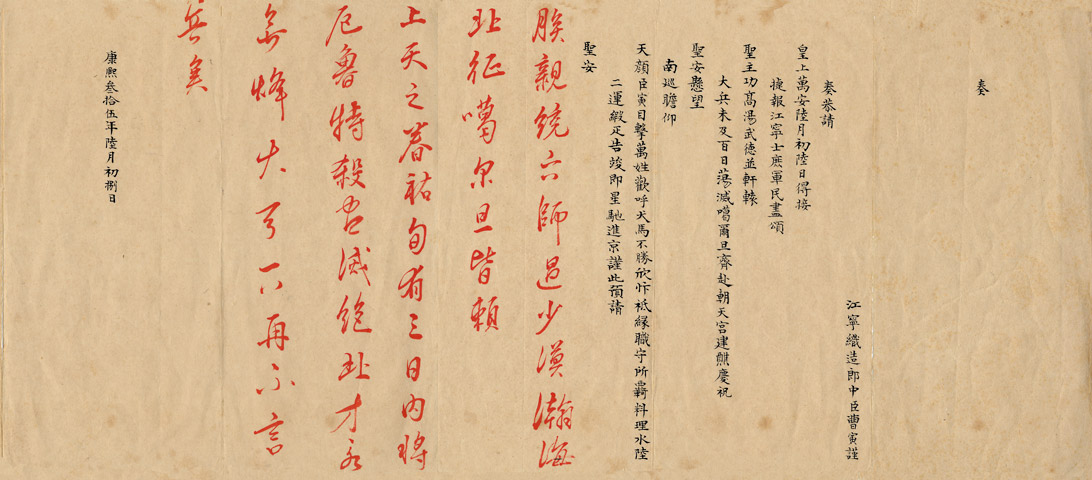 奏
江寧織造郎中臣曹寅謹
奏恭請
皇上萬安陸月初陸日得接
捷報江寧士庶軍民盡頌
聖主功高湯武德並軒轅
大兵未及百日蕩滅噶爾旦齊赴朝天宮建醮慶祝
聖安懸望
南巡瞻仰
天顏臣寅目擊萬姓歡呼犬馬不勝欣忭祗緣職守所羇料理水陸
二運緞疋告竣即星馳進京謹此預請
聖安
朕親統六師過少漠瀚海
北征噶尔旦皆賴
上天之眷祐旬有三日內將
厄魯特殺盡滅絕北方永
無烽火天下再不言
兵矣
康熙叁拾伍年陸月初捌日